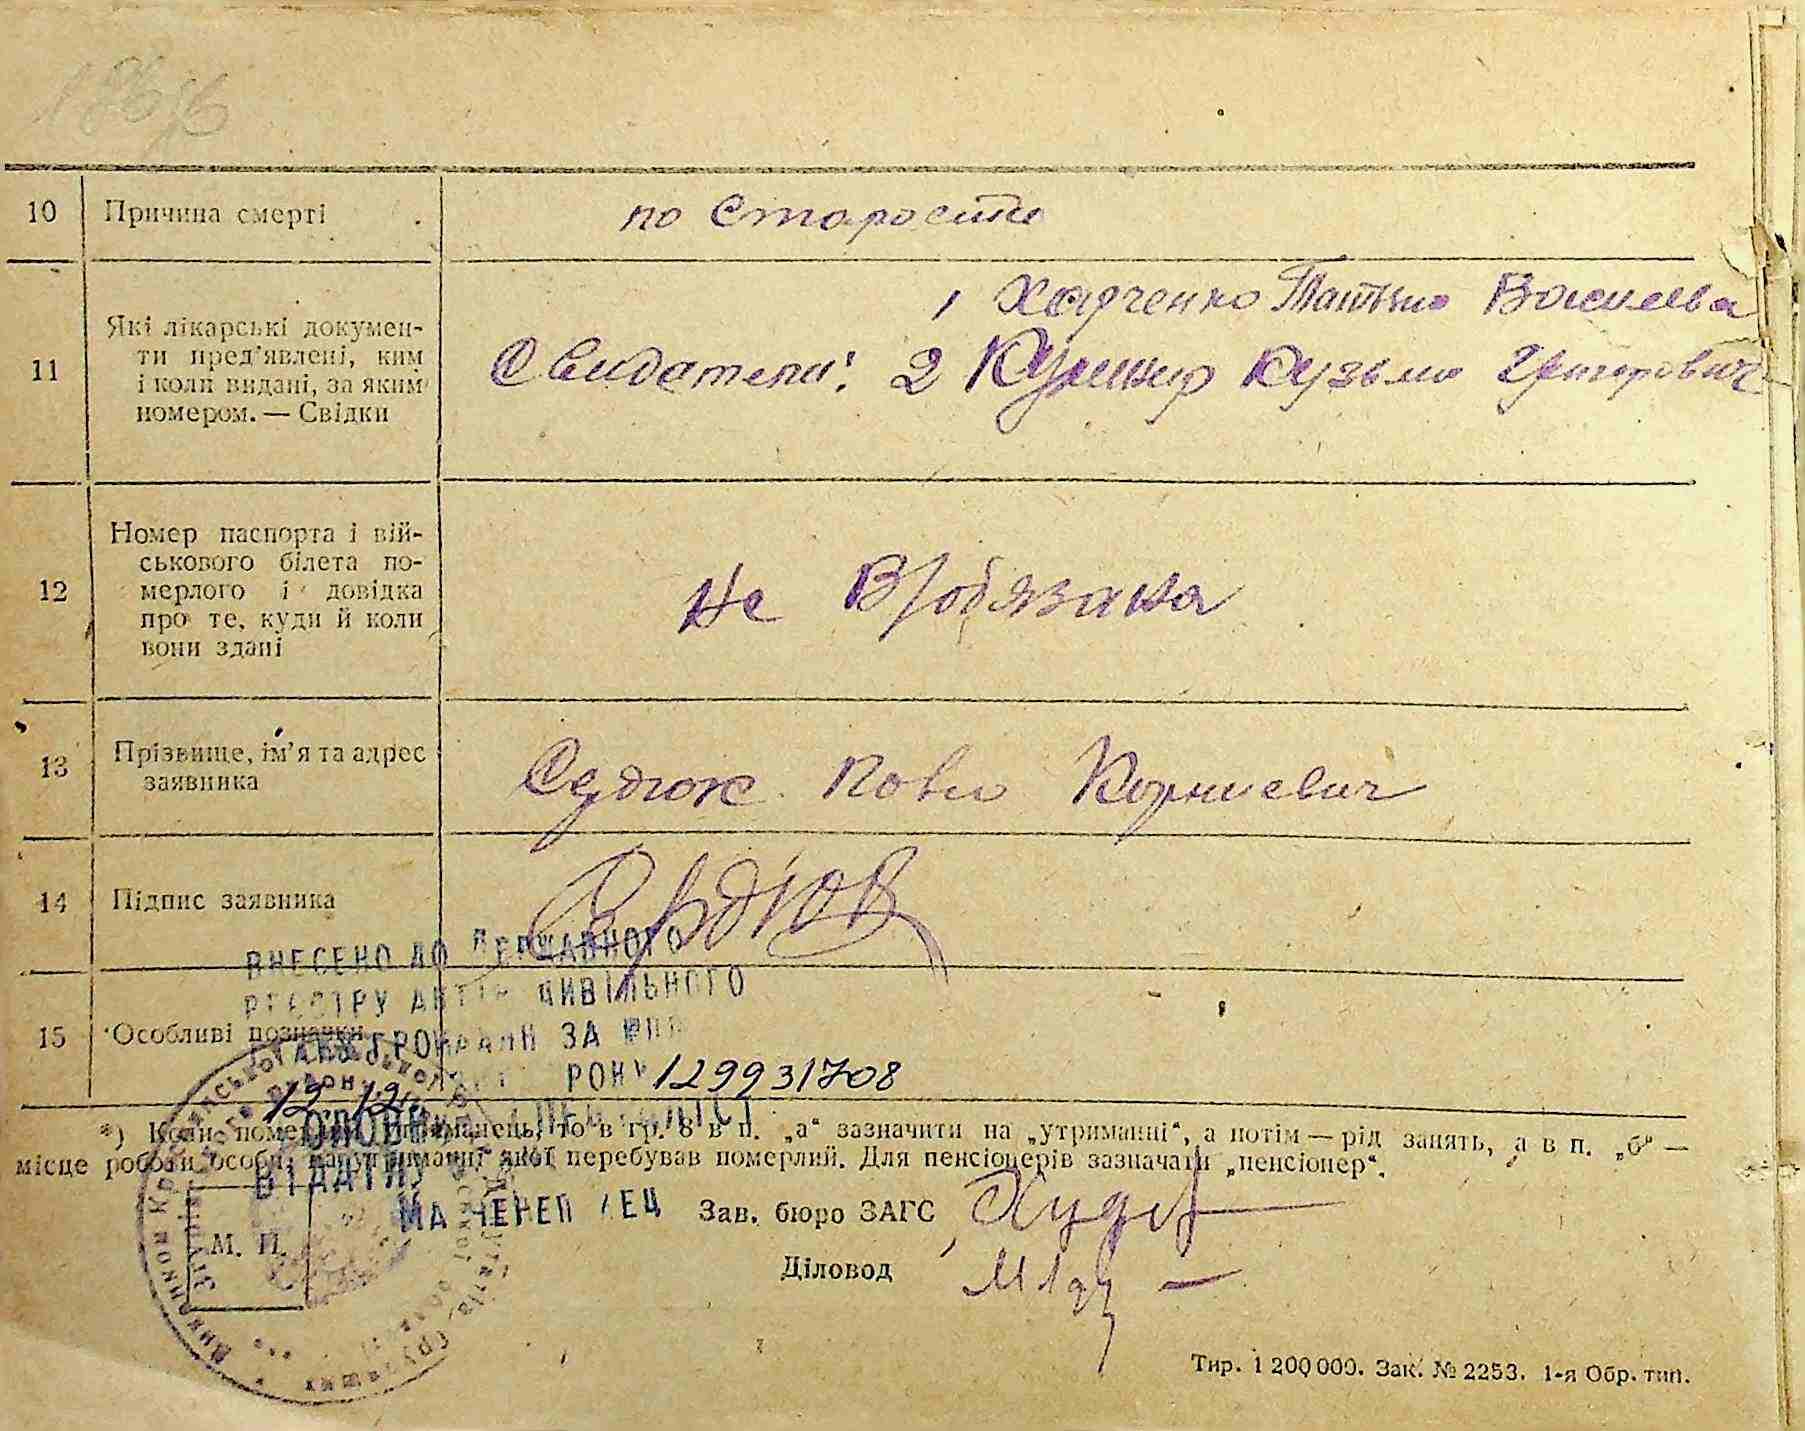 10 Причина смерті по старости
1 Харченко Татьяна Василева
11 Які лікарські докумен-
ти пред'явлені, ким
і коли видані, за яким
номером. — Свідки
Свидатели: 2 Кушнир Кузьма Григорович
12 Номер паспорта і вій-
ськового білета по-
мерлого і довідка
про те, куди й коли
вони здані
не В/обязана
13 Прізвище, ім'я та адрес
заявника
Седюк Павло Корниевич
14 Підпис заявника Седюк
ВНЕСЕНО ДО ДЕРЖАВНОГО
РЕЄСТРУ АКТІВ ЦИВІЛЬНОГО
15 Особливі позначки
СТАНУ ГРОМАДЯН ЗА
РОКУ 129931708
12 12
*) Коли померлий утриманець, то в гр. 8 в п. „а“ зазначити на „утриманні“, а потім — рід занять, а в п. „б“ —
місце роботи особи, на утриманні якої перебував померлий. Для пенсіонерів зазначати „пенсіонер“.
ВІДДІЛУ
М. П.
Зав. бюро ЗАГС
Діловод
Тир. 1 200 000. Зак. № 2253. 1-я Обр. тип.